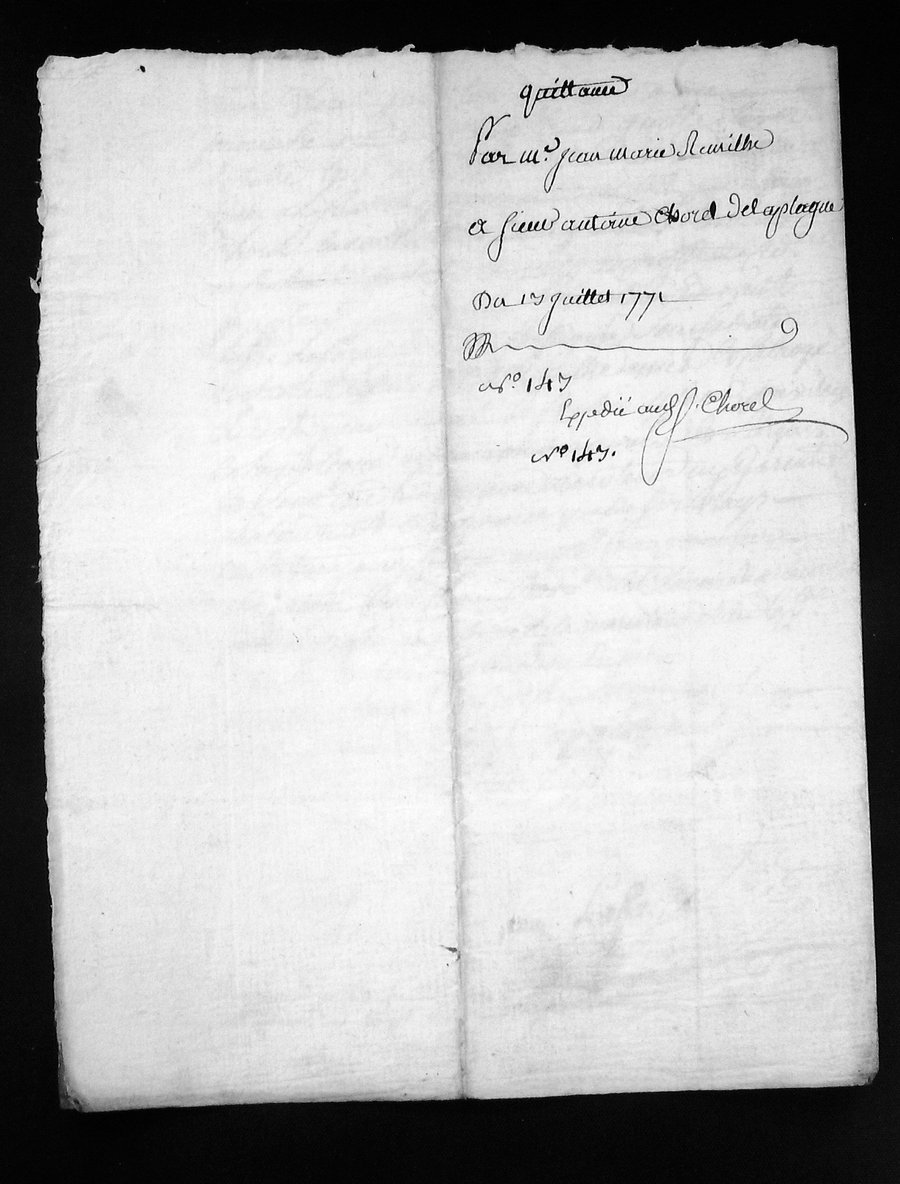 quittance
Par mr. jean marie
a sieur antoine Chorel Delaplagne
Du 13 juillet 1771
No. 143
Expedié audt Sr. Chorel
No 143.